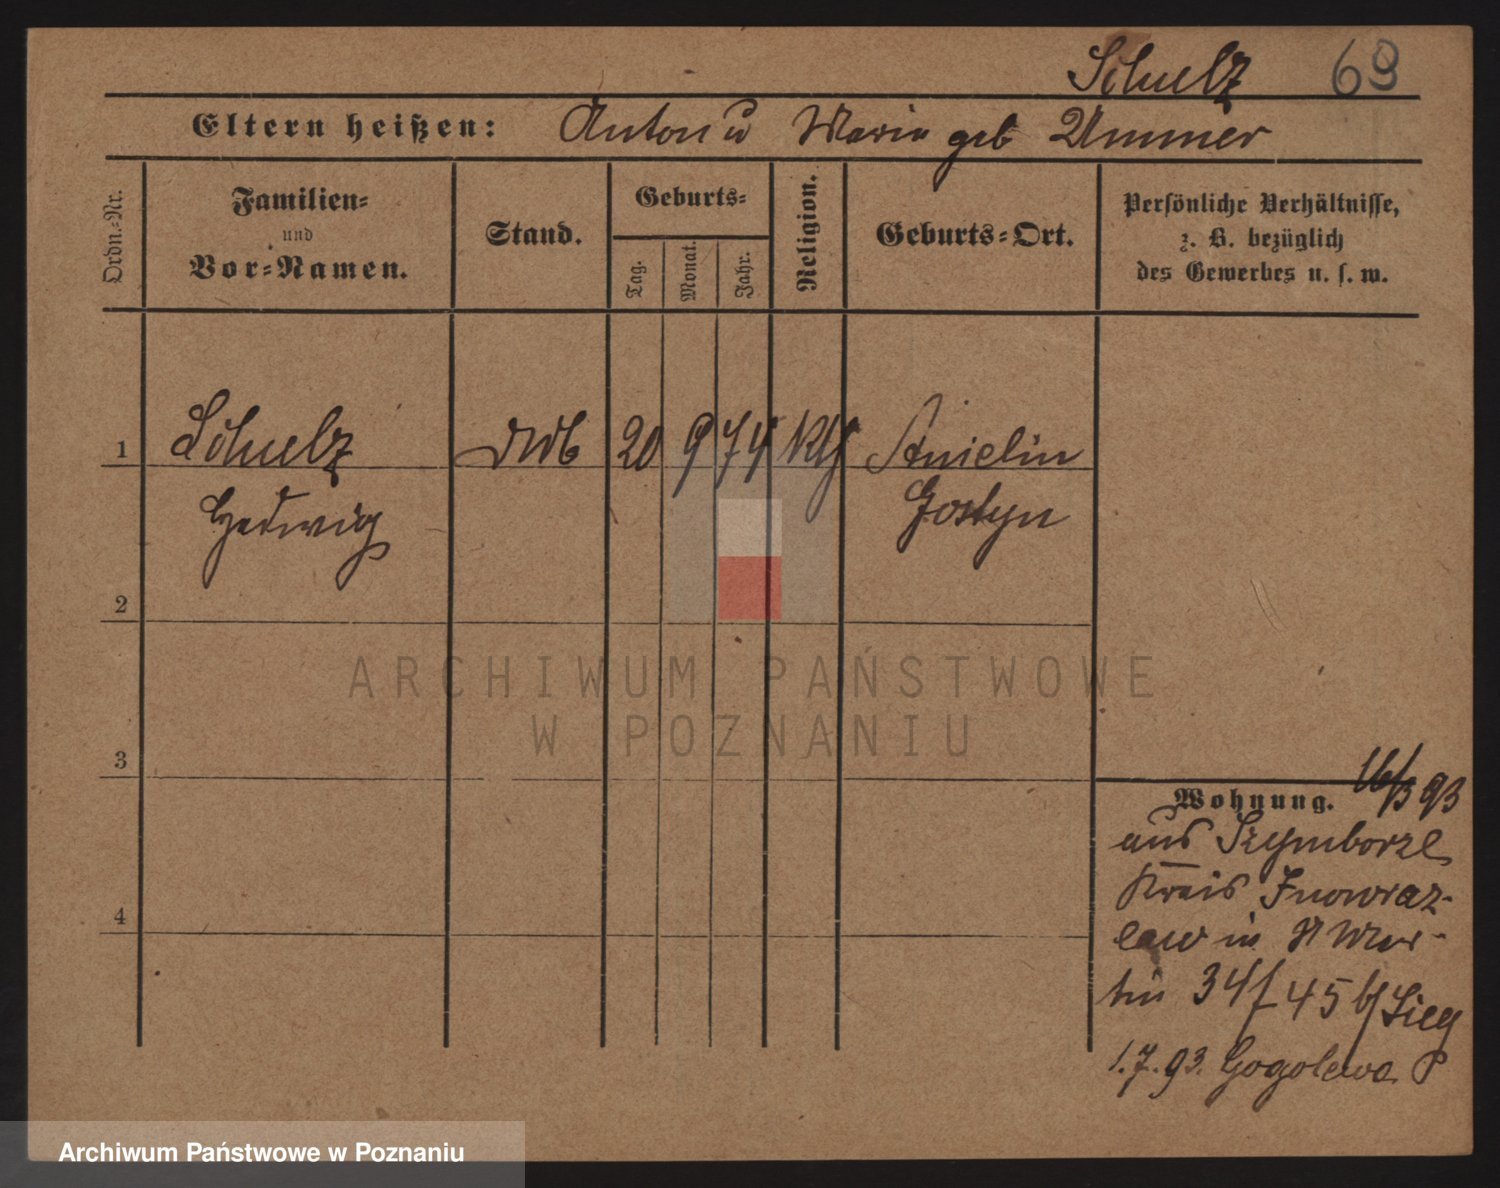 Schulz 69
Eltern heißen: Anton u Marie geb Ummer
Ordn.-Nr.
Familien-
und
Vor-Namen.
Stand.
Geburts-
Tag.
Monat.
Jahr.
Religion.
Geburts-Ort.
Persönliche Verhältnisse,
z. B. bezüglich
des Gewerbes u. s. w.
1 Schulz 20 9 74 Kth Anielin
Hedwig Gostyn
2
ARCHIWUM PAŃSTWOWE
W POZNANIU
3
Wohnung. 16/3 93
aus Szymborze
Kreis Inowraz-
law in St Mar-
tin 34 / 45 b/
1.7.93. Gogolewo
4
Archiwum Państwowe w Poznaniu